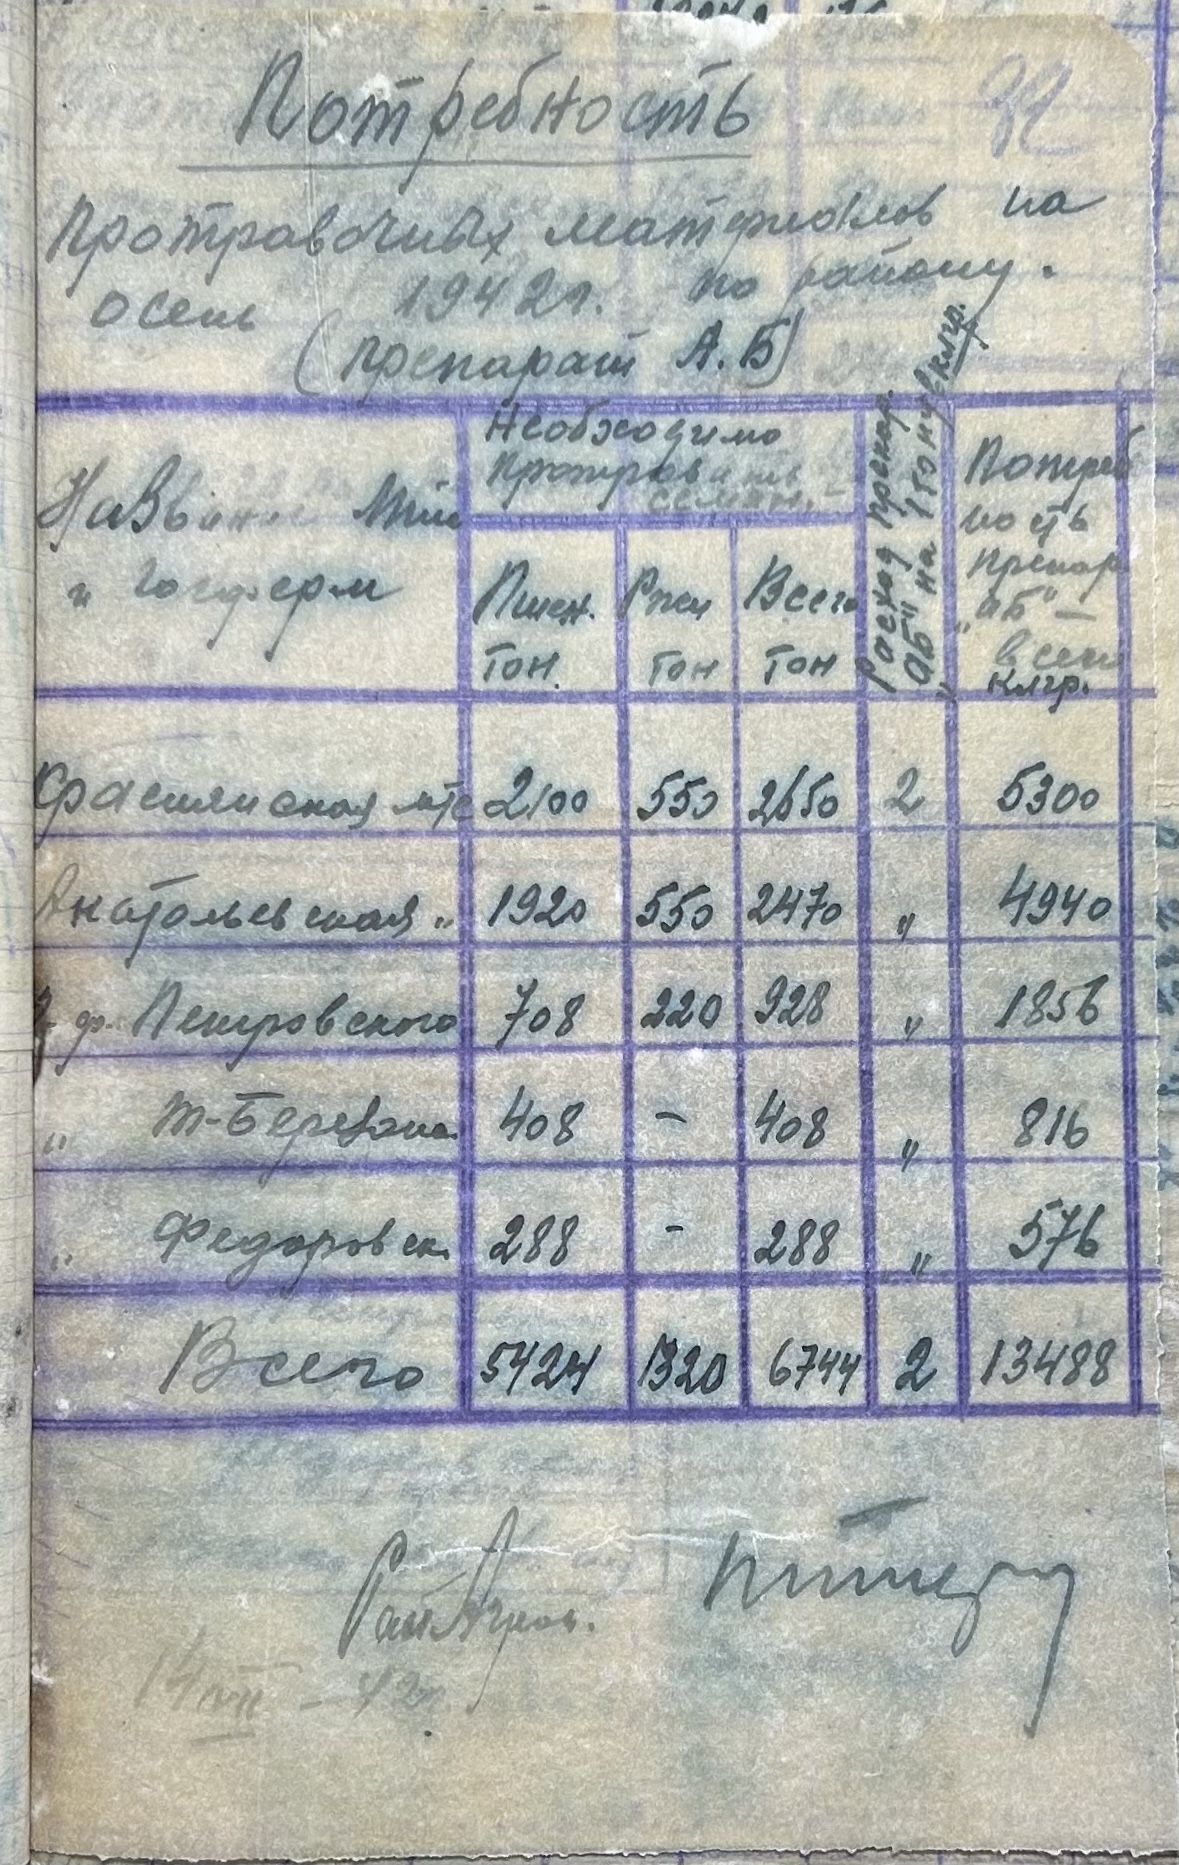 92
Потребность
Протравочных материалов на
осень 1942г. по району.
(препарат А.Б)
Название МТС и госферм | Необходимо протравить семян. | Расход препар. "АБ" на 1 тонну в клгр. | Потреб ность препар. "АБ" – всего клгр.
Пшен. тон. | Ржи тон | Всего тон
МТС 2100 550 2650 2 5300
Анатольевская " 1920 550 2470 " 4940
г. ф. Петровского 708 220 928 " 1856
" Т-Березан. 408 – 408 " 816
" Федоровск. 288 – 288 " 576
Всего 5424 1320 6744 2 13488
РайАгрон.
14/VII – 42г.